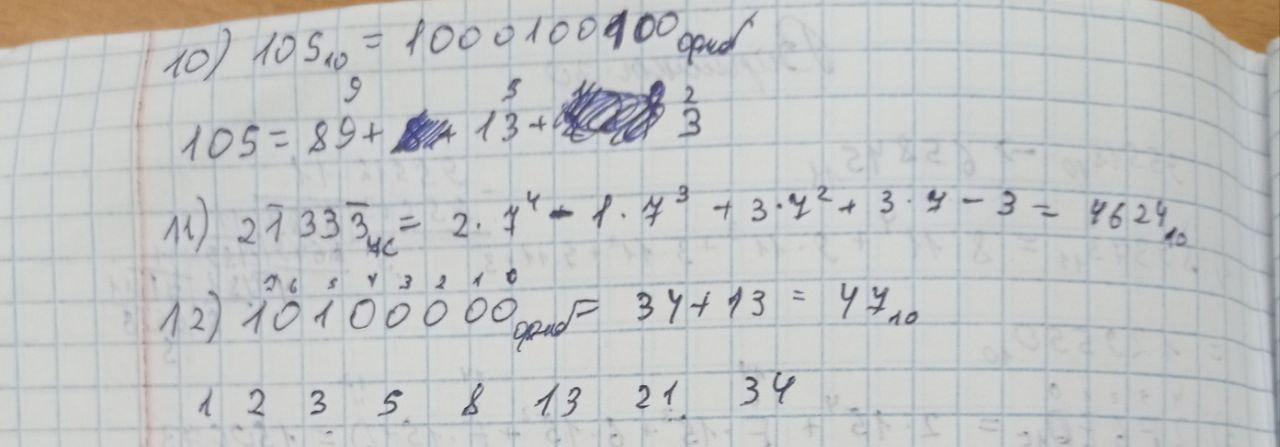 10) 105₁₀ = 1000100100фиб
9 5 2
105 = 89 + 13 + 3
11) 21̅333̅₇с = 2·7⁴ - 1·7³ + 3·7² + 3·7 - 3 = 4624₁₀
7 6 5 4 3 2 1 0
12) 10100000фиб = 34 + 13 = 47₁₀
1 2 3 5 8 13 21 34